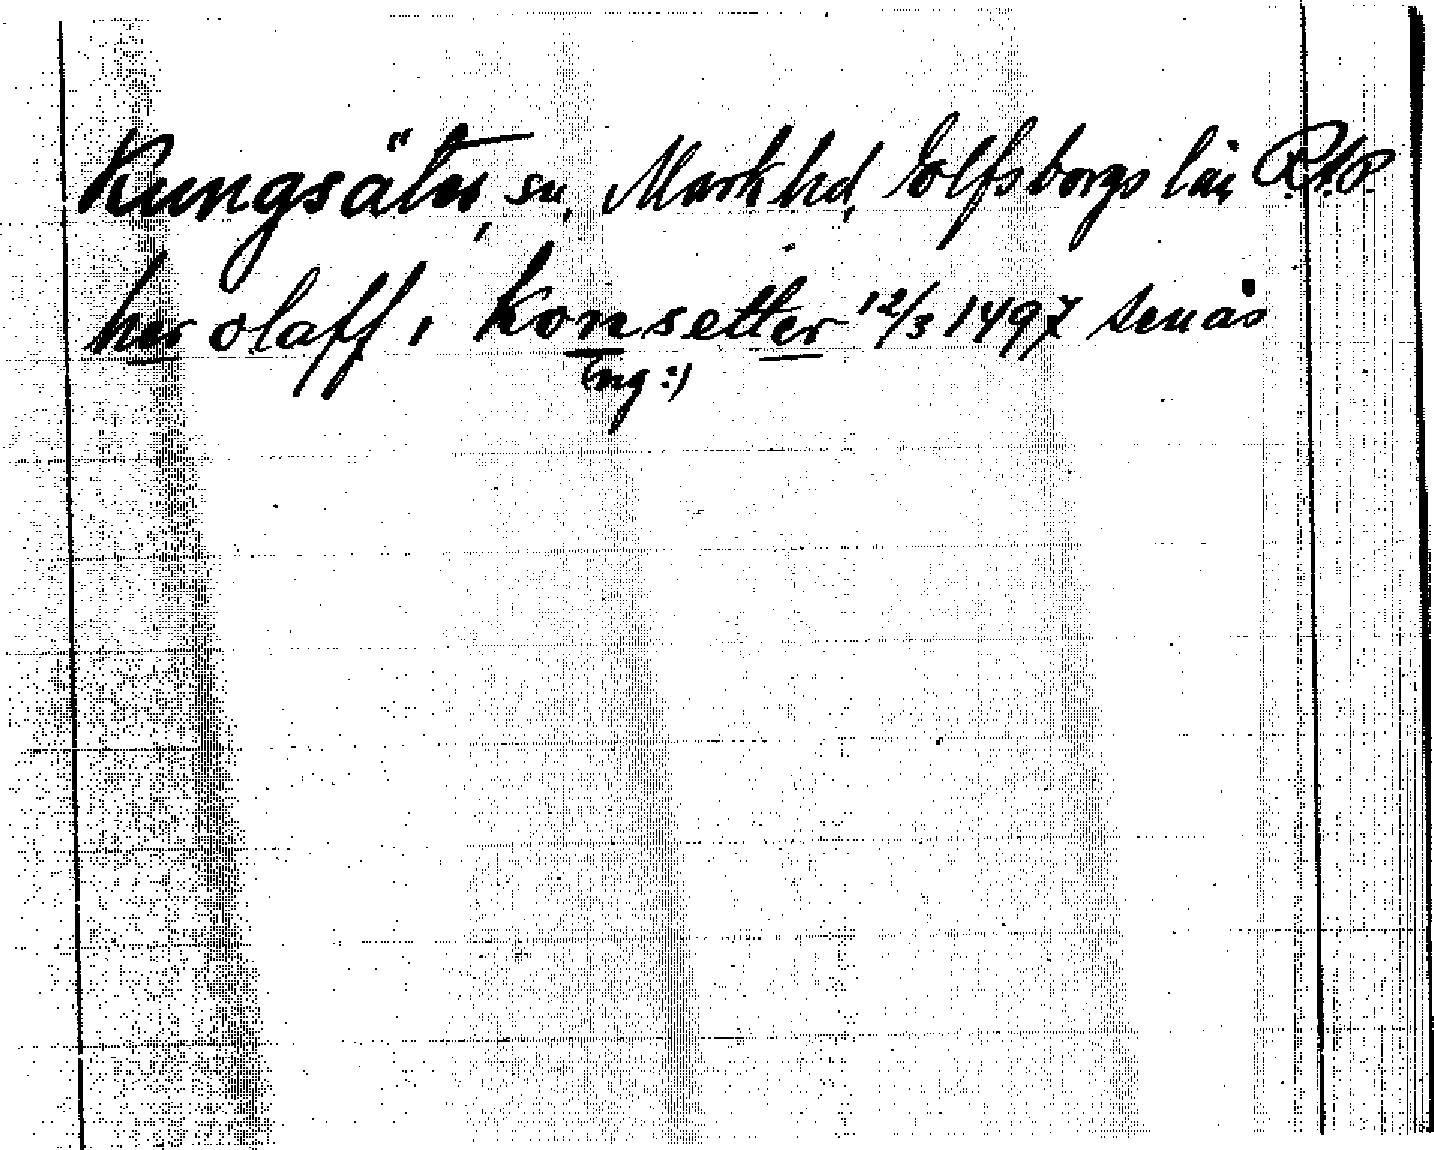 Kungsäter, sn, Mark hd, Elfsborgs län
her olaff i Konsetter 12/3 1497
(ng:)